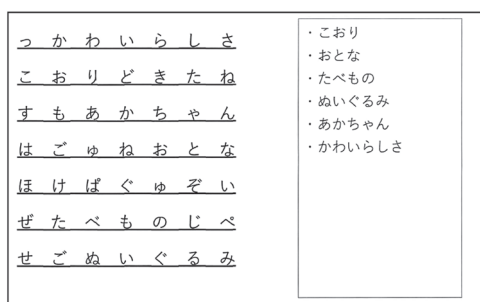 っ か わ い ら し さ
こ お り ど き た ね
す も あ か ち ゃ ん
は ご ゅ ね お と な
ほ け ぱ ぐ ゅ ぞ い
ぜ た べ も の じ ぺ
せ ご ぬ い ぐ る み
・こおり
・おとな
・たべもの
・ぬいぐるみ
・あかちゃん
・かわいらしさ